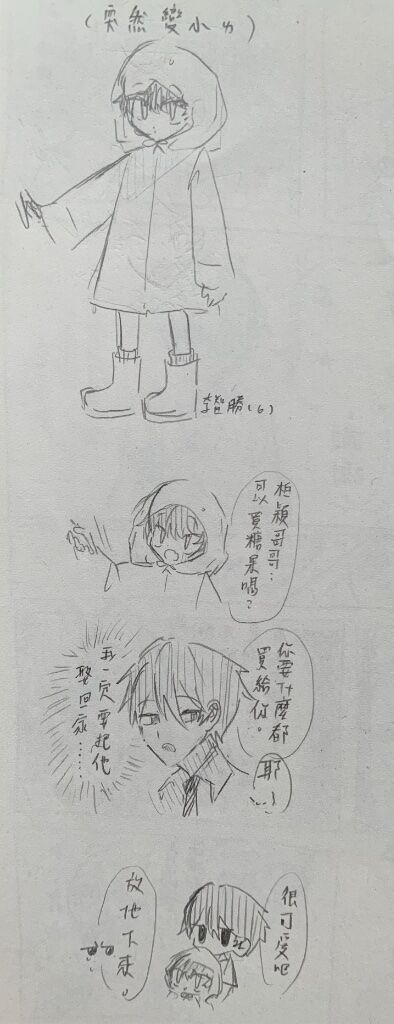 (突然變小ㄌ)
李智勝(6)
柜潁哥哥:
可以買糖果嗎?
你要什麼都
買給你。
耶~
我一定要把他
娶回家……
很可愛吧
放他下來。